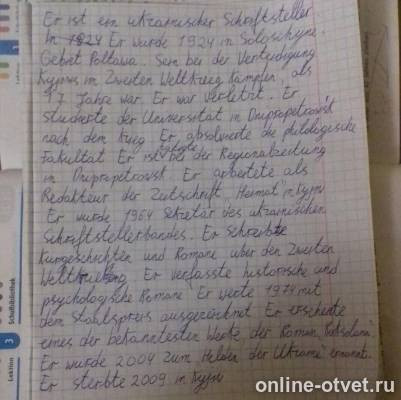 Er ist ein ukrainischer Schriftsteller
In 1924 Er wurde 1924 in Soloschyne.
Gebiet Poltawa. Sein bei der Verteidigung
Kyjiws im Zweiten Weltkrieg kämpfen, als
17 Jahre war. Er war verletzt. Er
studierte der Universität in Dnipropetrowsk
nach dem Krieg Er absolvierte die philologische
Fakultät Er ist bei der Regionalzeitung
in Dnipropetrowsk. Er arbeitete als
Redakteur der Zeitschrift „Heimat" in Kyjiw
Er wurde 1964 Sekretär des ukrainischen
Schriftstellerbandes. Er schreibte
Kurgeschichten und Romane über den Zweiten
Weltkrieg Er verfasste historische und
psychologische Romane Er werte 1974 mit
dem Staatspreis ausgezeichnet Er
eines der bekanntesten Werke der Roman
Er wurde 2004 zum Helden der Ukraine ernannt.
Er sterbte 2009 in Kyjiw
Lektion 3
Schulbibliothek
online-otvet.ru